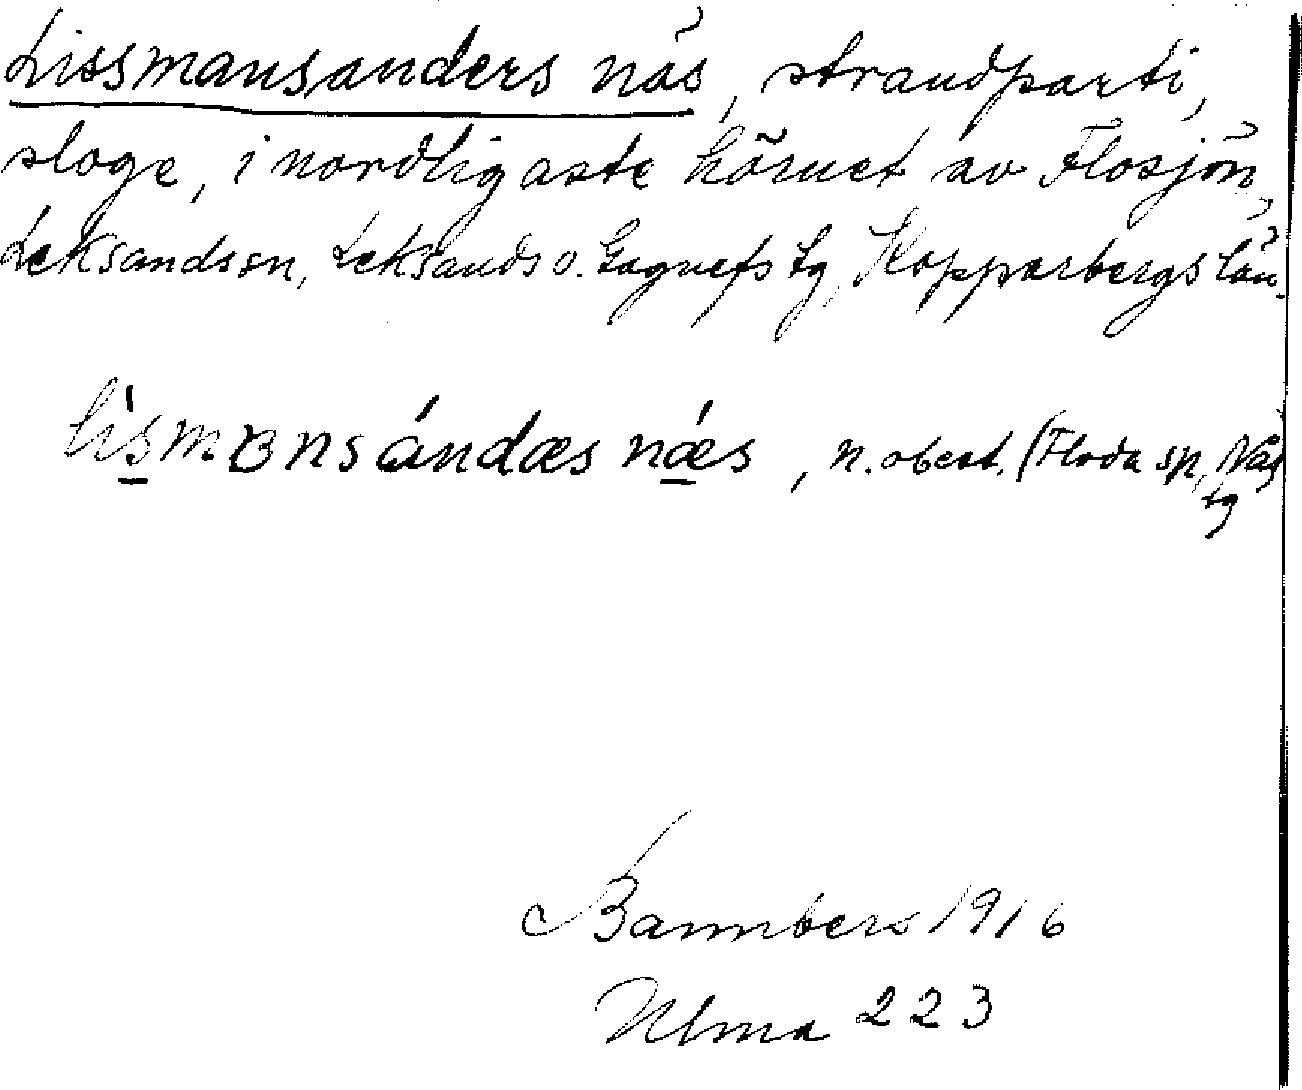 Lissmansanders näs, strandparti,
sloge, i nordligaste hörnet av Flosjön,
Leksands sn, Leksands o. Gagnefs tg, Kopparbergs län.
lismɐnsándæs næs, n. obest. (Floda sn, Nås
tg
Bannbers 1916
Ulma 223